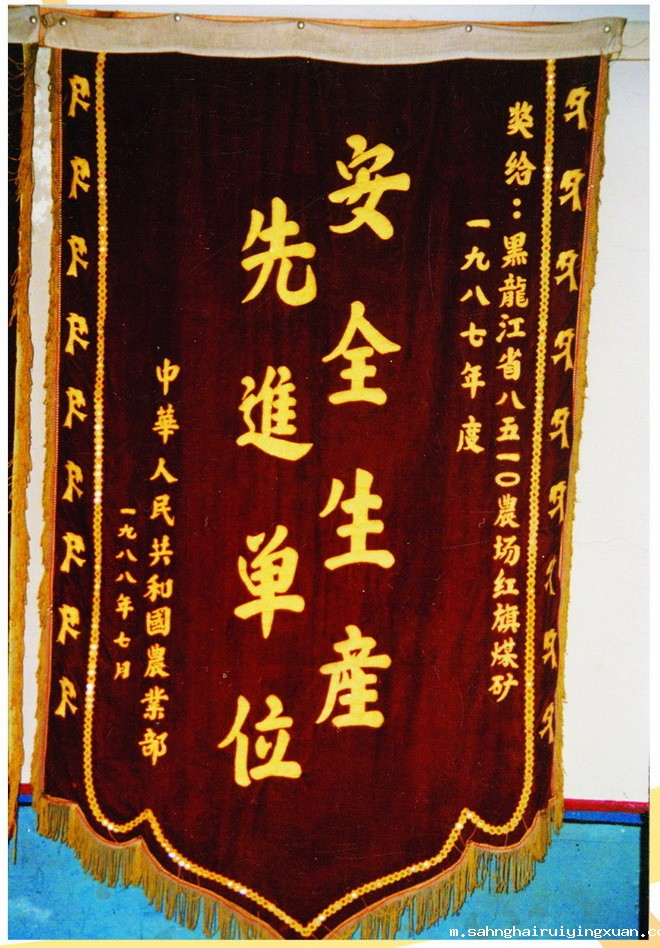 奖给：黑龍江省八五一〇農场红旗煤矿
一九八七年度
安全生産
先進单位
中華人民共和國農業部
一九八八年七月
m.sahnghairuiyingxuan.c